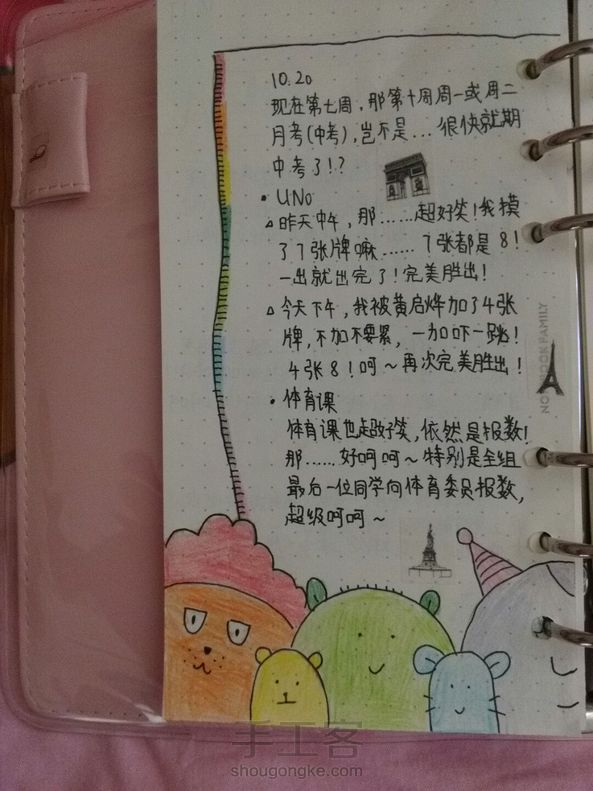 10.20
现在第七周，那第十周周一或周二
月考(中考)，岂不是…很快就期
中考了!?
• UNo
△ 昨天中午，那……超好笑!我摸
了7张牌嘛……7张都是8!
一出就出完了!完美胜出!
△ 今天下午，我被黄启烨加了4张
牌，不加不要紧，一加吓一跳!
4张8!呵~再次完美胜出!
• 体育课
体育课也超好笑，依然是报数!
那……好呵呵~特别是全组
最后一位同学向体育委员报数，
超级呵呵~
NOTEBOOK FAMILY
手工客
shougongke.com